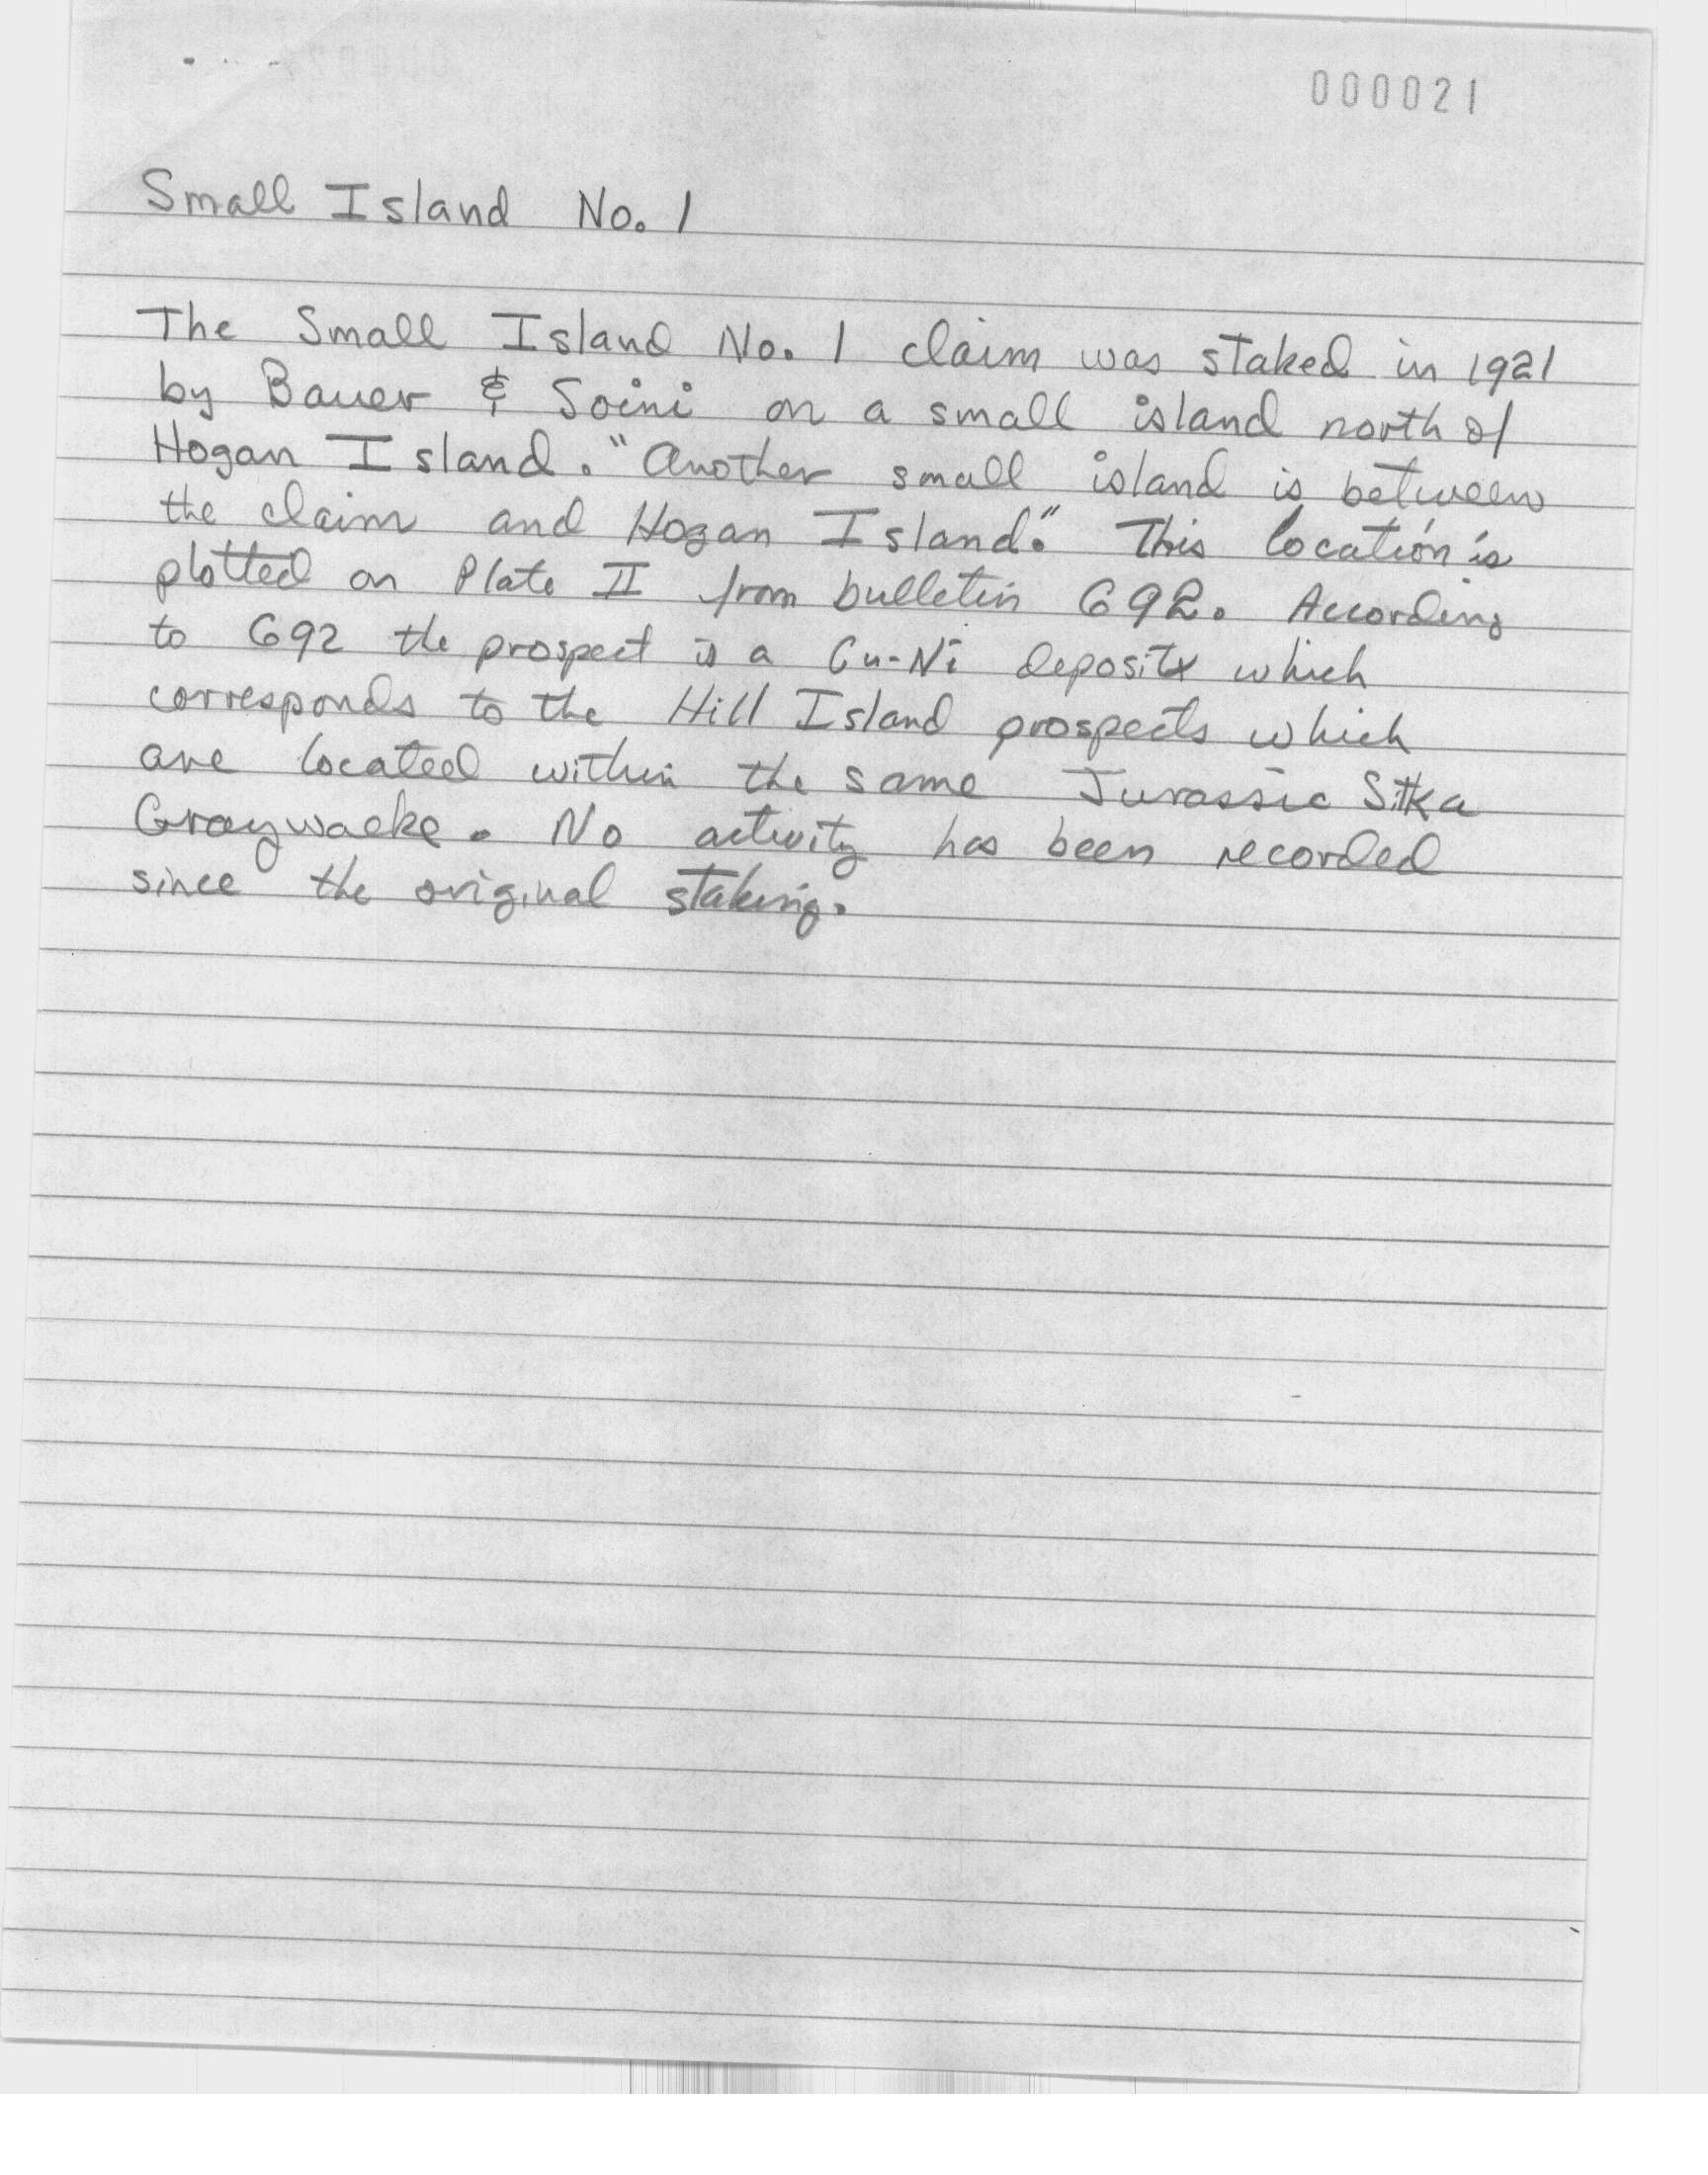 000021
Small Island No. 1
The Small Island No. 1 claim was staked in 1921
by Bauer & Soini on a small island north of
Hogan Island. "Another small island is between
the claim and Hogan Island." This location is
plotted on Plate II from bulletin 692. According
to 692 the prospect is a Cu-Ni deposit which
corresponds to the Hill Island prospects which
are located within the same Jurassic Sitka
Graywacke. No activity has been recorded
since the original staking.